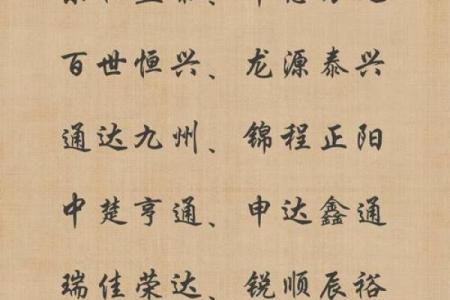 百世恒兴、龙源泰兴
通达九州、锦程正阳
中楚亨通、申达鑫通
瑞佳荣达、锐顺辰裕